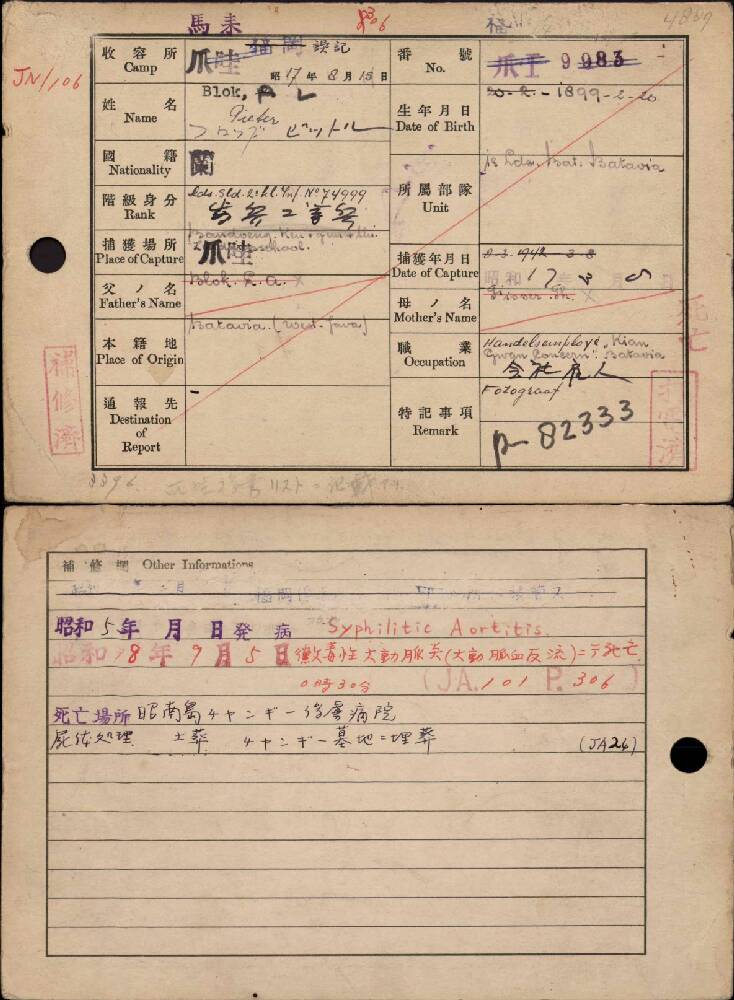 馬来
4809
JN/106
收容所 Camp
爪哇 福岡 誤記
昭17年8月15日
番號 No.
爪王 9983
姓名 Name
Blok, P L
Pieter
ブロック ピットル
生年月日 Date of Birth
1899-2-20
國籍 Nationality
蘭
所屬部隊 Unit
1e Lds. Bat. Batavia
階級身分 Rank
Lds. Sld. 2e kl. Inf. No 74999
捕獲場所 Place of Capture
爪哇
捕獲年月日 Date of Capture
8-3-1942 3-8
昭和17年3月8日
父ノ名 Father's Name
Blok. L.a. x
母ノ名 Mother's Name
本籍地 Place of Origin
Batavia. (West-Java)
職業 Occupation
Handelsemployé, Kian
Gwan Concern. Batavia
会社雇人
通報先 Destination of Report
-
特記事項 Remark
Fotograaf
P-82333
死亡
補修濟
補修欄 Other Informations
昭和5年 月 日発病 Syphilitic Aortitis.
昭和18年9月5日黴毒性大動脈炎(大動脈血反流)ニテ死亡
0時30分 (JA.101 P.306)
死亡場所 昭南島チャンギー俘虜病院
屍体処理 土葬 チャンギー墓地ニ埋葬 (JA24)